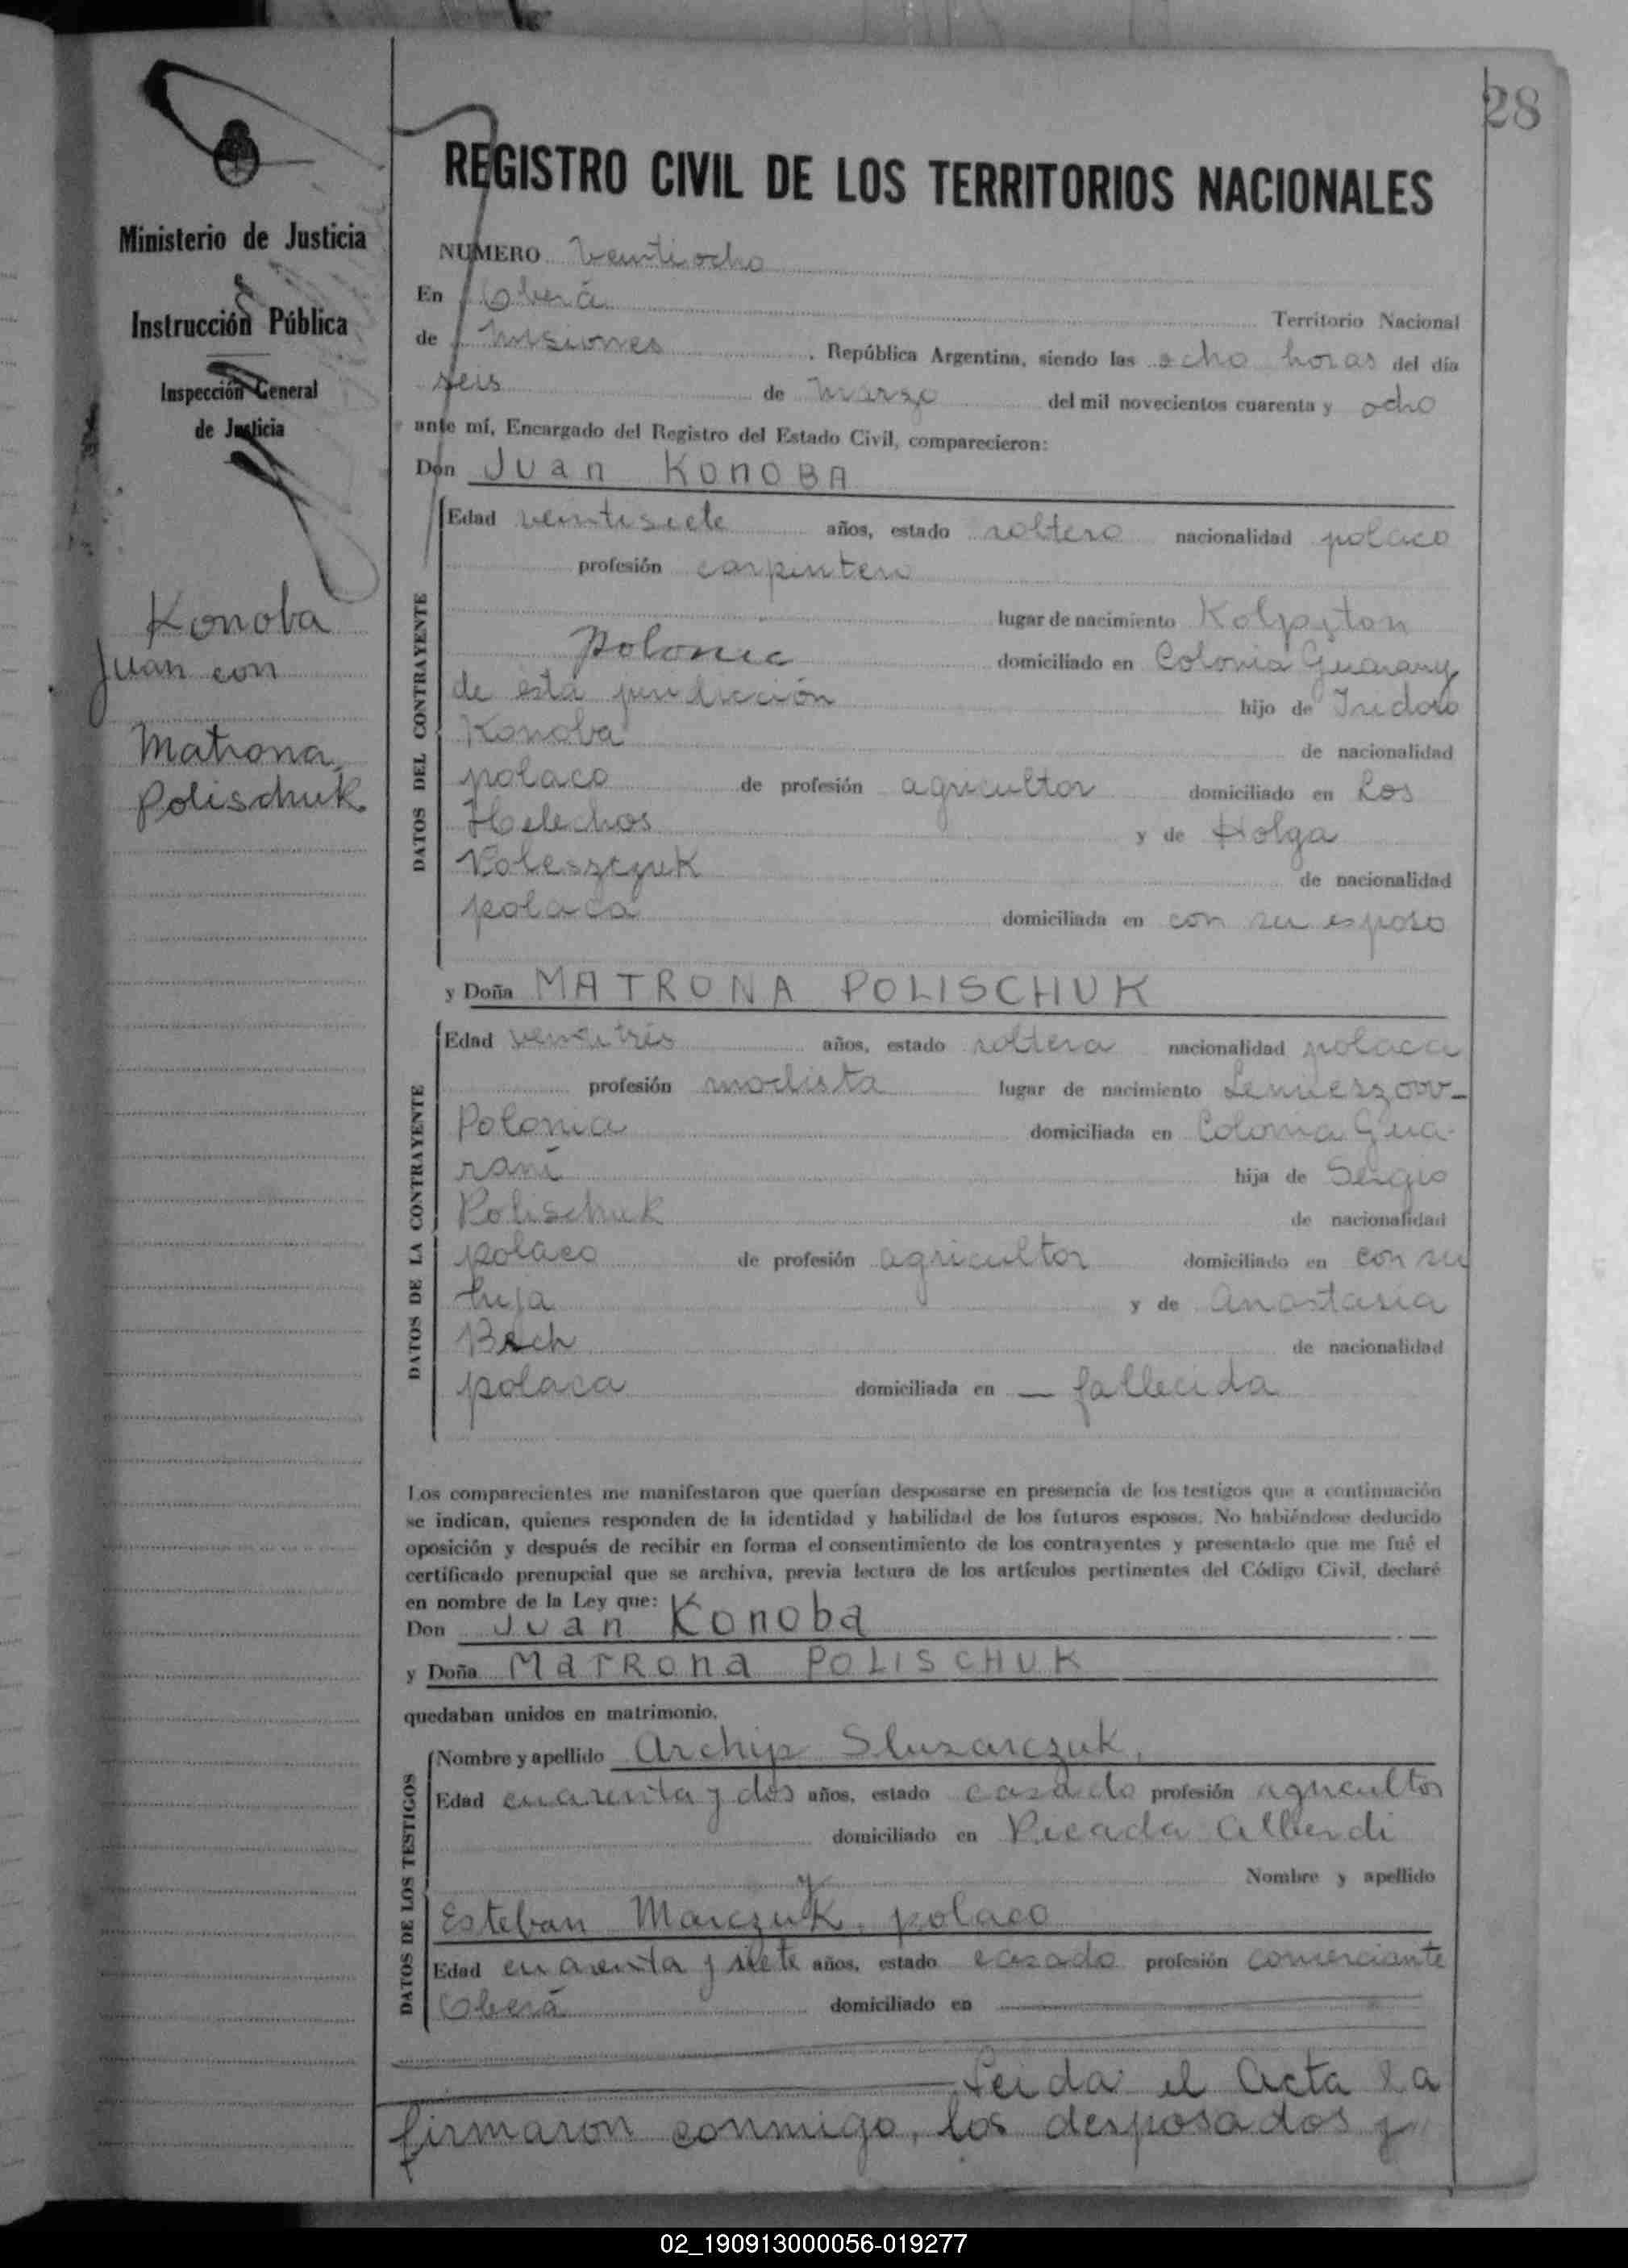 28
Ministerio de Justicia
e
Instrucción Pública
Inspección General
de Justicia
Konoba
Juan con
Matrona
Polischuk
REGISTRO CIVIL DE LOS TERRITORIOS NACIONALES
NUMERO veintiocho
En Oberá Territorio Nacional
de Misiones República Argentina, siendo las ocho horas del día
seis de marzo del mil novecientos cuarenta y ocho
ante mí, Encargado del Registro del Estado Civil, comparecieron:
Don Juan KONOBA
DATOS DEL CONTRAYENTE
Edad veintisiete años, estado soltero nacionalidad polaco
profesión carpintero
lugar de nacimiento
Polonia domiciliado en Colonia Guarany
de esta jurisdicción hijo de Isidoro
Konoba de nacionalidad
polaco de profesión agricultor domiciliado en Los
Helechos y de Holga
Poleszczuk de nacionalidad
polaca domiciliada en con su esposo
y Doña MATRONA POLISCHUK
DATOS DE LA CONTRAYENTE
Edad veintitrés años, estado soltera nacionalidad polaca
profesión modista lugar de nacimiento
Polonia domiciliada en Colonia Gua-
raní hija de Sergio
Polischuk de nacionalidad
polaco de profesión agricultor domiciliado en con su
hija y de Anastasia
de nacionalidad
polaca domiciliada en — fallecida
Los comparecientes me manifestaron que querían desposarse en presencia de los testigos que a continuación
se indican, quienes responden de la identidad y habilidad de los futuros esposos. No habiéndose deducido
oposición y después de recibir en forma el consentimiento de los contrayentes y presentado que me fué el
certificado prenupcial que se archiva, previa lectura de los artículos pertinentes del Código Civil, declaré
en nombre de la Ley que:
Don Juan Konoba
y Doña MaTRona POLISCHUK
quedaban unidos en matrimonio.
DATOS DE LOS TESTIGOS
Nombre y apellido Archip Sluzarczuk,
Edad cuarenta y dos años, estado casado profesión agricultor
domiciliado en Picada Alberdi
y Nombre y apellido
Esteban Marczuk, polaco
Edad cuarenta y siete años, estado casado profesión comerciante
Oberá domiciliado en
Leida el Acta la
firmaron conmigo, los desposados y
02_190913000056-019277